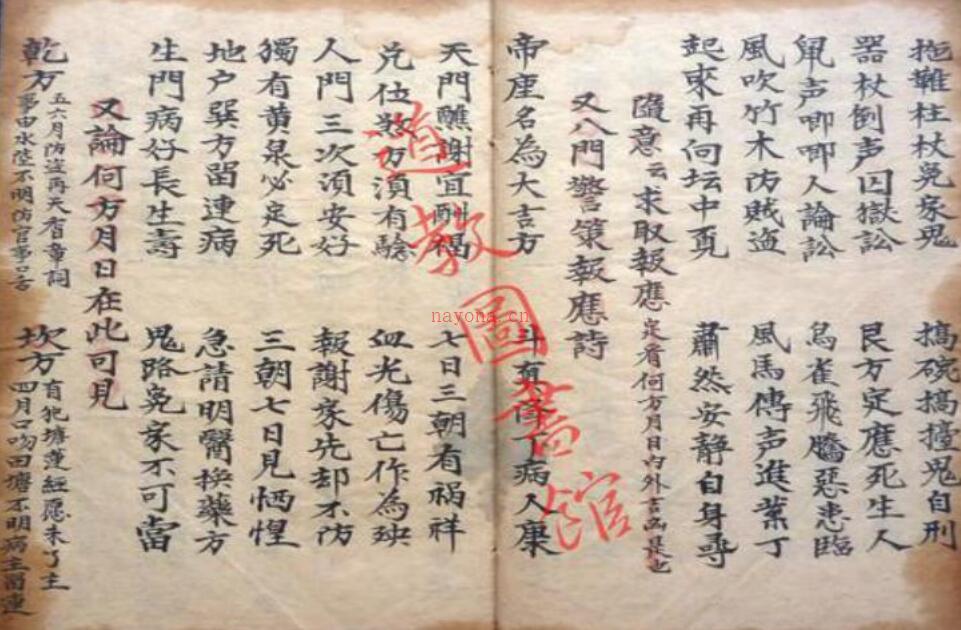 拖鞋柱杖冤家鬼 搞碗搞擡鬼自刑
器杖倒声囚獄訟 艮方定應死生人
鼠声唧唧人論訟 烏雀飛騰惡患臨
風吹竹木防賊盗 風馬傳声進業丁
起來再向坛中覓 肅然安靜自身尋
隨意云求取報應定看何方月日内外吉凶是也
又八門警策報應詩
帝座名為大吉方 斗有 下病人康
天門醮謝宜酬 七日三朝有禍祥
兑位 方湏有驗 血光傷亡作為殃
人門三次湏安好 報謝家先却不防
獨有黄泉必定死 三朝七日見恓惶
地户巽方留連病 急請明醫換藥方
生門病好長生壽 鬼路冤家不可當
又論何方月日在此可見
乾方 五六月防盗再天香章詞
事由水陸不明防官事口舌
坎方 有犯塘蓮經愿未了主
四月口吻田塘不明病主留連
道教圖書館
nayona.cn